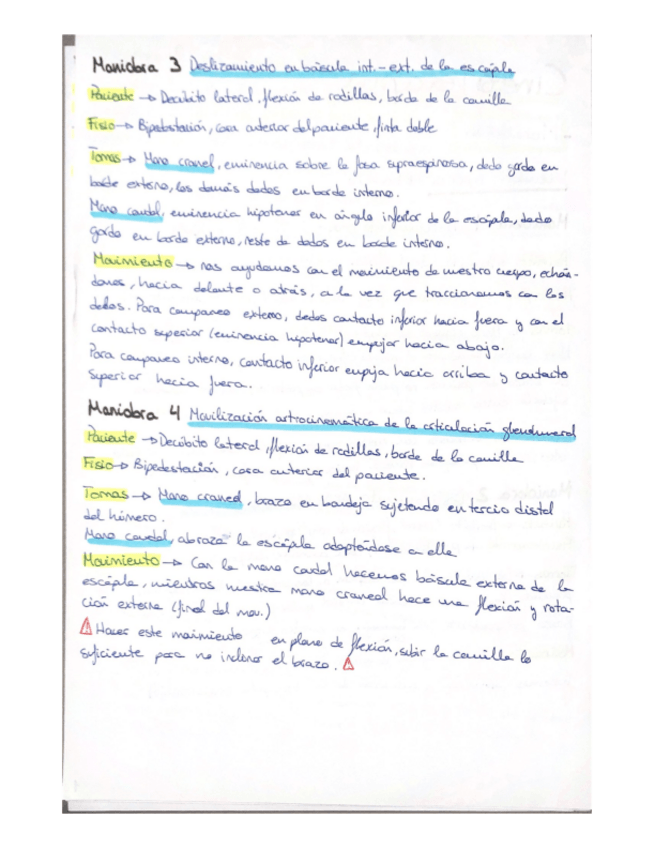 Maniobra 3 Deslizamiento en báscula int.-ext. de la escápula
Paciente → Decúbito lateral, flexión de rodillas, borde de la camilla
Fisio → Bipedestación, cara anterior del paciente, finta doble
Tomas → Mano craneal, eminencia sobre la fosa supraespinosa, dedo gordo en
borde externo, los demás dedos en borde interno.
Mano caudal, eminencia hipotenar en ángulo inferior de la escápula, dedo
gordo en borde externo, resto de dedos en borde interno.
Movimiento → nos ayudamos con el movimiento de nuestro cuerpo, echán-
donos, hacia delante o atrás, a la vez que traccionamos con los
dedos. Para campaneo externo, dedos contacto inferior hacia fuera y con el
contacto superior (eminencia hipotenar) empujar hacia abajo.
Para campaneo interno, contacto inferior empuja hacia arriba y contacto
superior hacia fuera.
Maniobra 4 Movilización artrocinemática de la articulación glenohumeral
Paciente → Decúbito lateral, flexión de rodillas, borde de la camilla
Fisio → Bipedestación, cara anterior del paciente.
Tomas → Mano craneal, brazo en bandeja sujetando en tercio distal
del húmero.
Mano caudal, abraza la escápula adaptándose a ella
Movimiento → Con la mano caudal hacemos báscula externa de la
escápula, mientras nuestra mano craneal hace una flexión y rota-
ción externa (final del mov.)
⚠ Hacer este movimiento en plano de flexión, subir la camilla lo
suficiente para no inclinar el brazo. ⚠